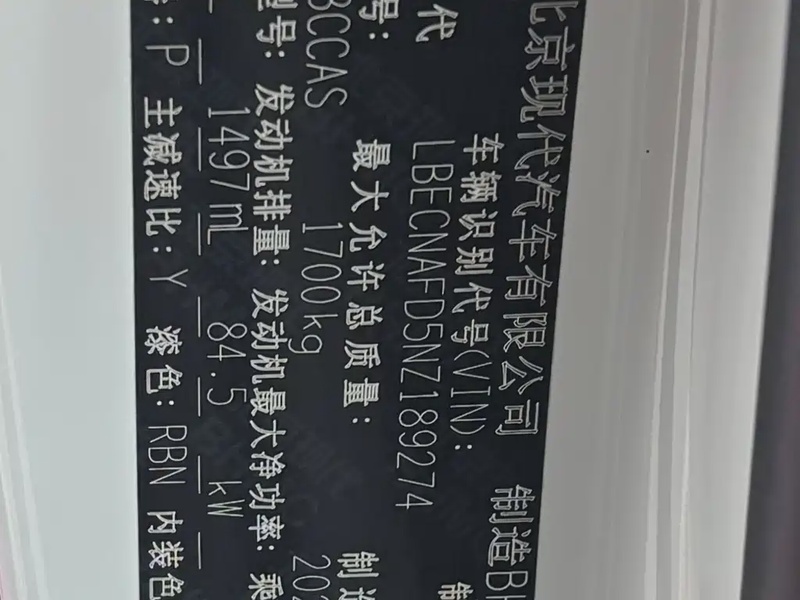 北京现代汽车有限公司 制造BH
代
车辆识别代号(VIN): 制
LBECNAFD5NZ189274
号:
最大允许总质量: 制造
BCCAS 1700kg 202
型号: 发动机排量: 发动机最大净功率: 乘
1497mL 84.5 kW
: P 主减速比: Y 漆色: RBN 内装色